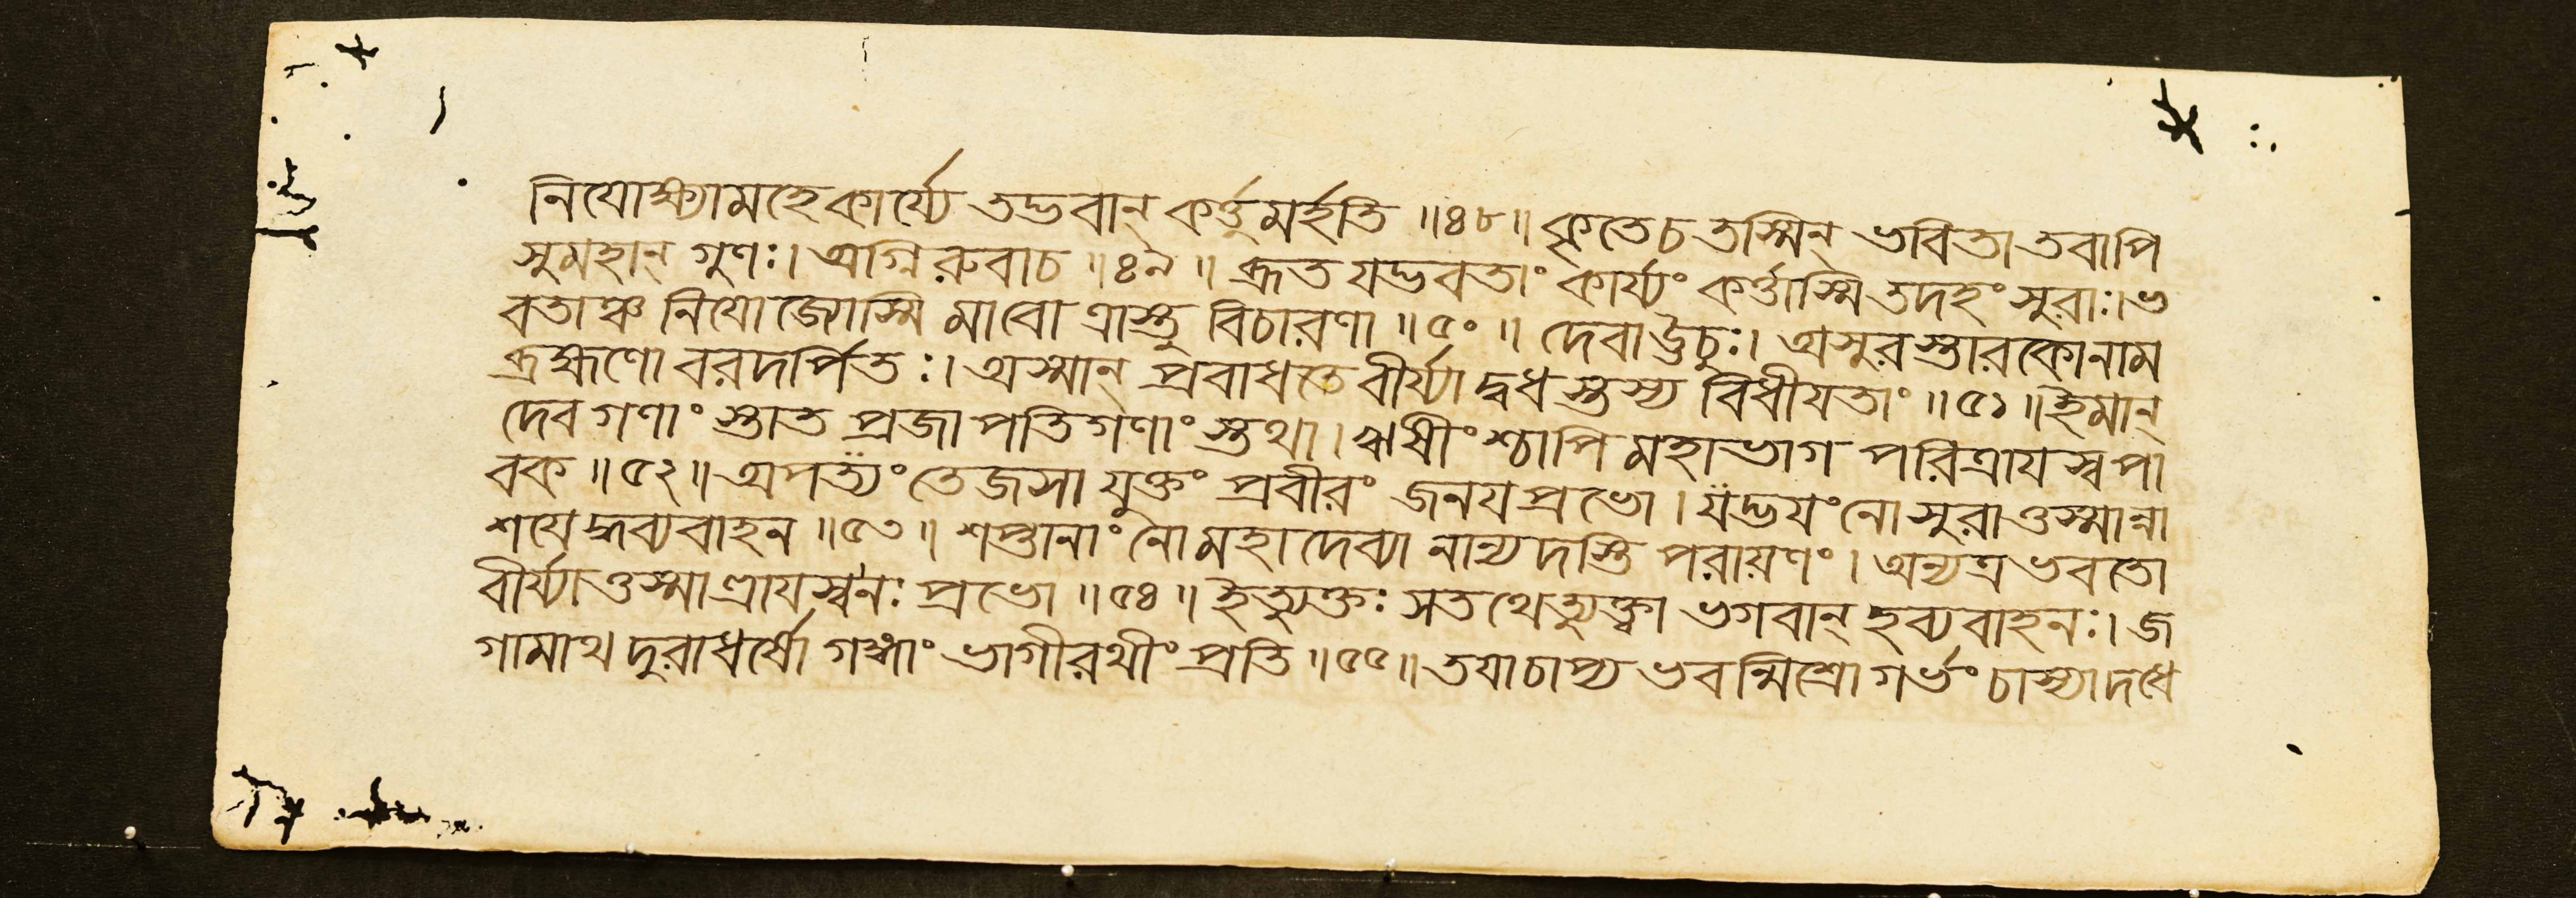 নিযোক্ষ্যামহে কার্য্যে তদ্ভবান্ কর্ত্তুমর্হতি ॥৪৮॥ কৃতেচ তস্মিন্ ভবিতা তবাপি
সুমহান্ গুণঃ। অগ্নিরুবাচ ॥৪৯॥ ব্রূত যদ্ভবতাং কার্য্যং কর্ত্তাস্মি তদহং সুরাঃ। ভ
বতাঞ্চ নিযোজ্যোস্মি মাবো ত্রাস্তু বিচারণা ॥৫০॥ দেবাঊচুঃ। অসুরস্তারকোনাম
ব্রহ্মণো বরদর্পিতঃ। অস্মান্ প্রবাধতে বীর্য্যাদ্বধস্তস্য বিধীযতাং ॥৫১॥ ইমান্
দেবগণাংস্তাত প্রজাপতিগণাংস্তথা। ঋষীংশ্চাপি মহাভাগ পরিত্রাযস্ব পা
বক ॥৫২॥ অপত্যং তেজসা যুক্তং প্রবীরং জনয প্রভো। যদ্ভযং নোসুরাত্তস্মান্না
শযেদ্ধব্যবাহন ॥৫৩॥ শপ্তানাং নো মহাদেব্যা নান্যদস্তি পরায়ণং। অন্যত্র ভবতো
বীর্য্যাত্তস্মাত্রাযস্ব নঃ প্রভো ॥৫৪॥ ইত্যুক্তঃ সতথেত্যুক্ত্বা ভগবান্ হব্যবাহনঃ। জ
গামাথ দুরাধর্ষো গঙ্গাং ভাগীরথীং প্রতি ॥৫৫॥ তযাচাপ্য ভবন্মিশ্রো গর্ভং চাস্যাদধে